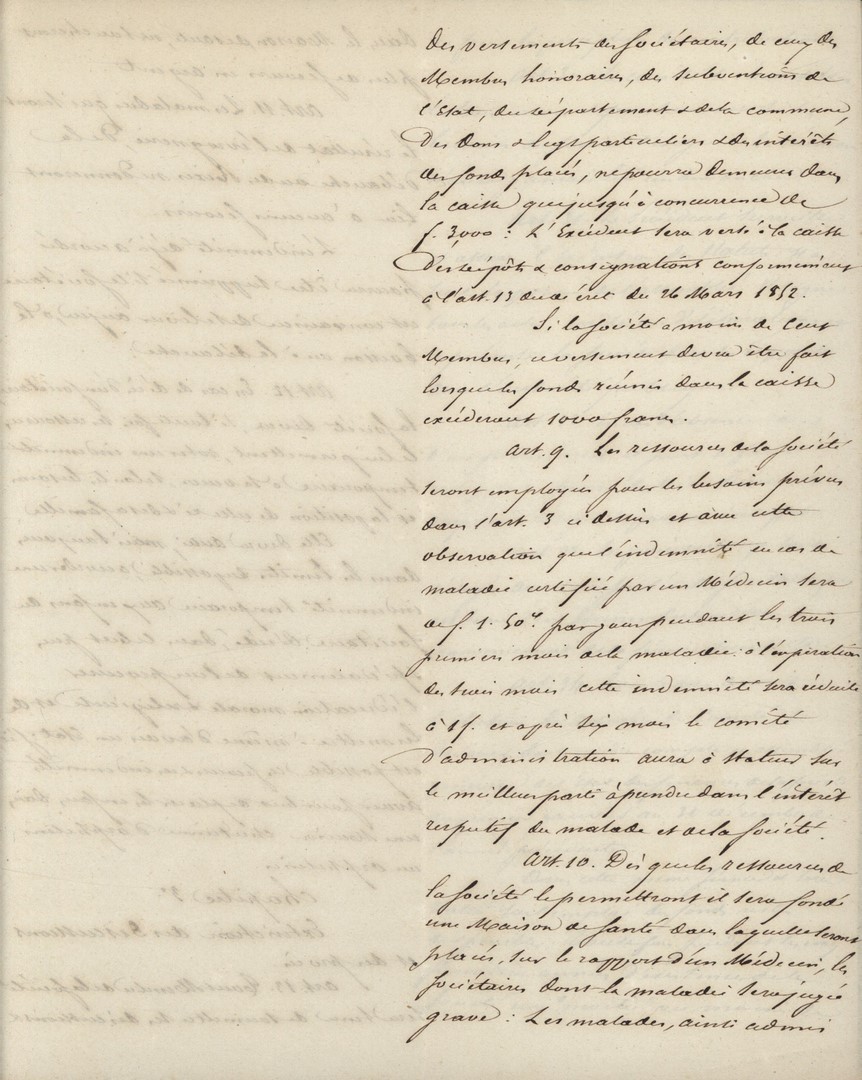 des versements des Sociétaires, de ceux des
Membres honoraires, des subventions de
l'Etat, du département & de la commune,
des dons & legs particuliers & des intérêts
des fonds placés, ne pourra demeurer dans
la caisse que jusqu'à concurrence de
f. 3,000 : L'Excédent sera versé à la caisse
des dépôts & consignations conformément
à l'art. 13 du décret du 26 Mars 1852.
Si la Société a moins de Cent
Membres, ce versement devra être fait
lorsque les fonds réunis dans la caisse
excéderont 1000 francs.
Art. 9. Les ressources de la Société
seront employées pour les besoins prévus
dans l'art. 3 ci dessus et avec cette
observation que l'indemnité en cas de
maladie certifiée par un Médecin sera
de f. 1. 50c. par jour pendant les trois
premiers mois de la maladie : à l'expiration
des trois mois cette indemnité sera réduite
à 1f. et après six mois le comité
d'administration aura à statuer sur
le meilleur parti à prendre dans l'intérêt
respectif du malade et de la Société.
Art. 10. Dès que les ressources de
la Société le permettront il sera fondé
une Maison de Santé dans laquelle seront
placés, sur le rapport d'un Médecin, les
Sociétaires dont la maladie sera jugée
grave : Les malades, ainsi admis